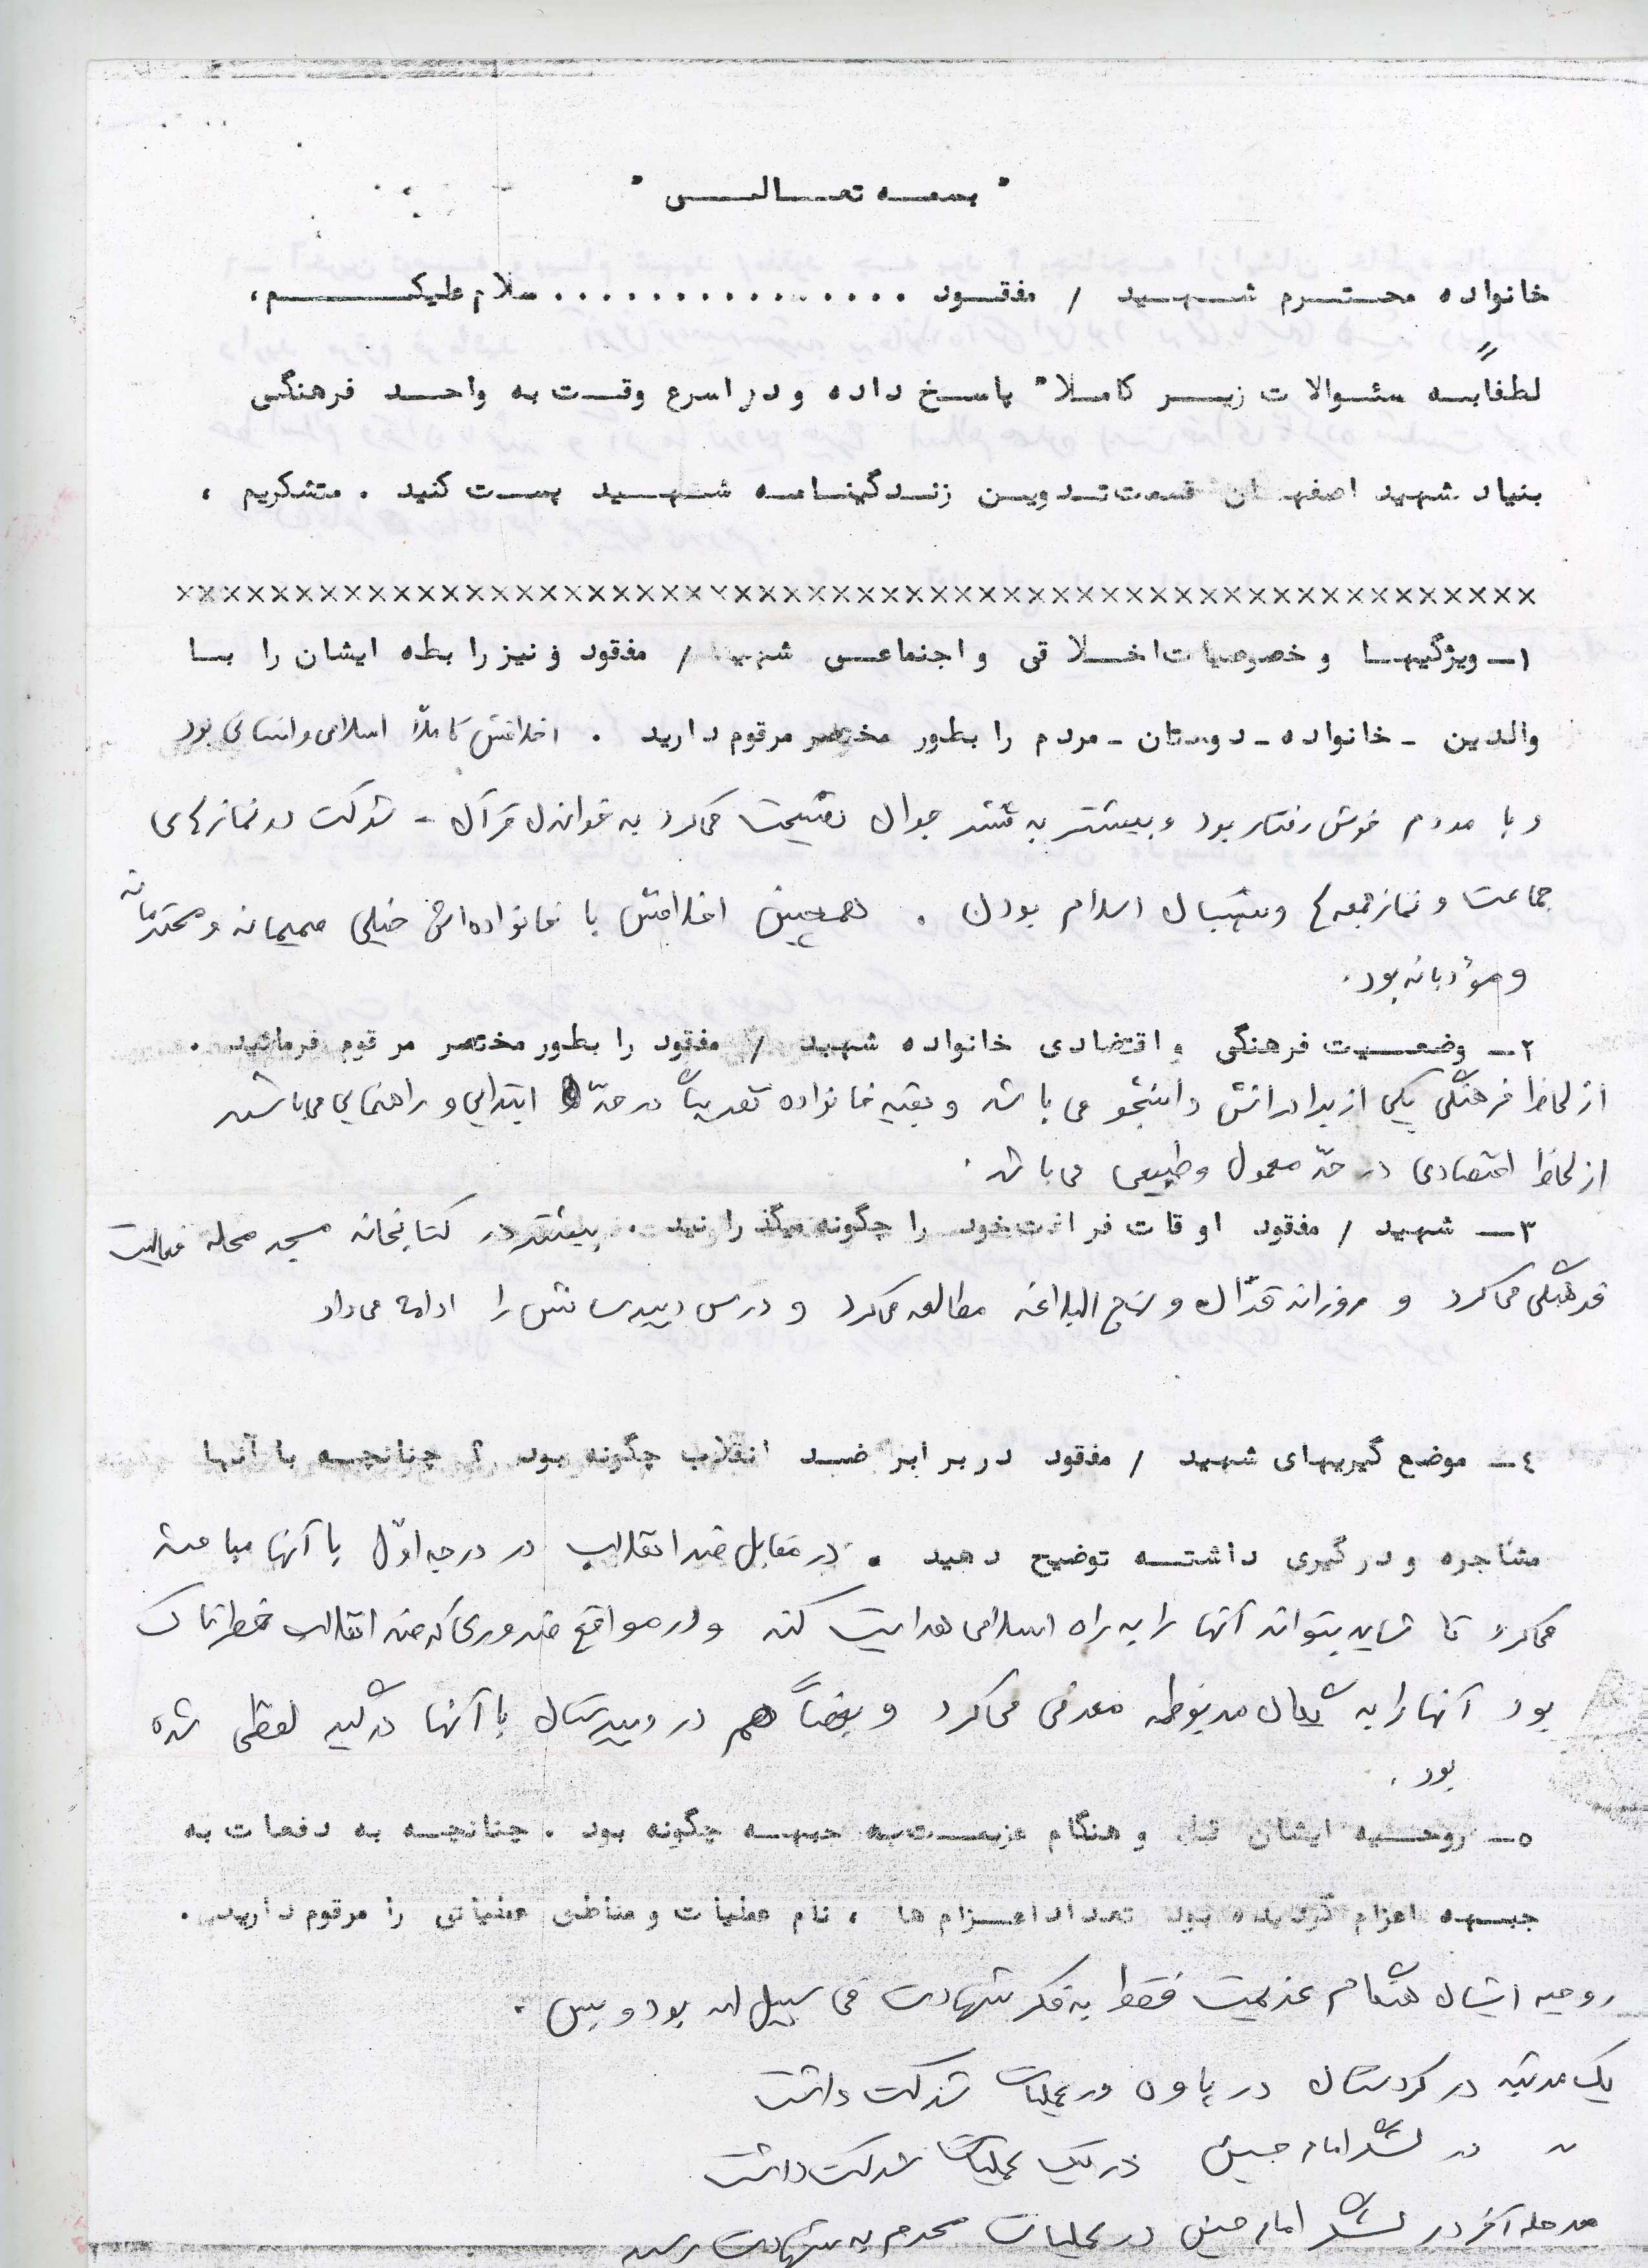 " بسمه تعالی "
خانواده محترم شهید / مفقود ................ سلام علیکم ،
لطفاً به سئوالات زیر کاملا" پاسخ داده و در اسرع وقت به واحد فرهنگی
بنیاد شهید اصفهان قسمت تدوین زندگینامه شهید پست کنید . متشکریم ،
××××××××××××××××××××××××××××××××××××××××××××××××××××××××
۱ـ ویژگیها و خصوصیات اخلاقی و اجتماعی شهید / مفقود و نیز رابطه ایشان را با
والدین ـ خانواده ـ دوستان ـ مردم را بطور مختصر مرقوم دارید . اخلاقش کاملاً اسلامی و انسانی بود
و با مردم خوش رفتار بود و بیشتر به قشر جوان نصیحت می‌کرد به خواندن قرآن - شرکت در نمازهای
جماعت و نماز جمعه ها و بدنبال اسلام بودن . همچنین اخلاقش با خانواده‌اش خیلی صمیمانه و محترمانه
و مؤدبانه بود .
۲ـ وضعیت فرهنگی و اقتصادی خانواده شهید / مفقود را بطور مختصر مرقوم فرمائید .
از لحاظ فرهنگی یکی از برادرانش دانشجو می باشد و بقیه خانواده تقریباً در حدّ ابتدایی و راهنمایی می باشند
از لحاظ اقتصادی در حدّ معمول و طبیعی می باشد .
۳ـ شهید / مفقود اوقات فراغت خود را چگونه میگذرانید . بیشتر در کتابخانه مسجد محله فعالیت
فرهنگی می کرد و روزانه قرآن و نهج البلاغه مطالعه می کرد و درس دبیرستانش را ادامه می داد
٤ـ موضع گیریهای شهید / مفقود در برابر ضد انقلاب چگونه بود ؟ چنانچه با آنها
مشاجره و درگیری داشته توضیح دهید . در مقابل ضد انقلاب در درجه اوّل با آنها مباحثه
می کرد تا شاید بتواند آنها را به راه اسلامی هدایت کند و در مواقع ضروری که ضد انقلاب خطرناک
بود آنها را به مربوطه معرفی می کرد و بعضاً هم در دبیرستان با آنها درگیر لفظی شده
بود .
٥ـ روحیه ایشان قبل و هنگام عزیمت به جبهه چگونه بود . چنانچه به دفعات به
جبهه اعزام گردیده بود تعداد اعزام ها ، نام عملیات و مناطق عملیاتی را مرقوم دارید .
روحیه ایشان هنگام عزیمت فقط به فکر شهادت فی سبیل الله بود و بس .
یک مرتبه در کردستان در پاوه در عملیات شرکت داشت
" در لشگر امام حسین در یک عملیات شرکت داشت
مرحله آخر در لشگر امام حسین در عملیات محرم به شهادت رسید